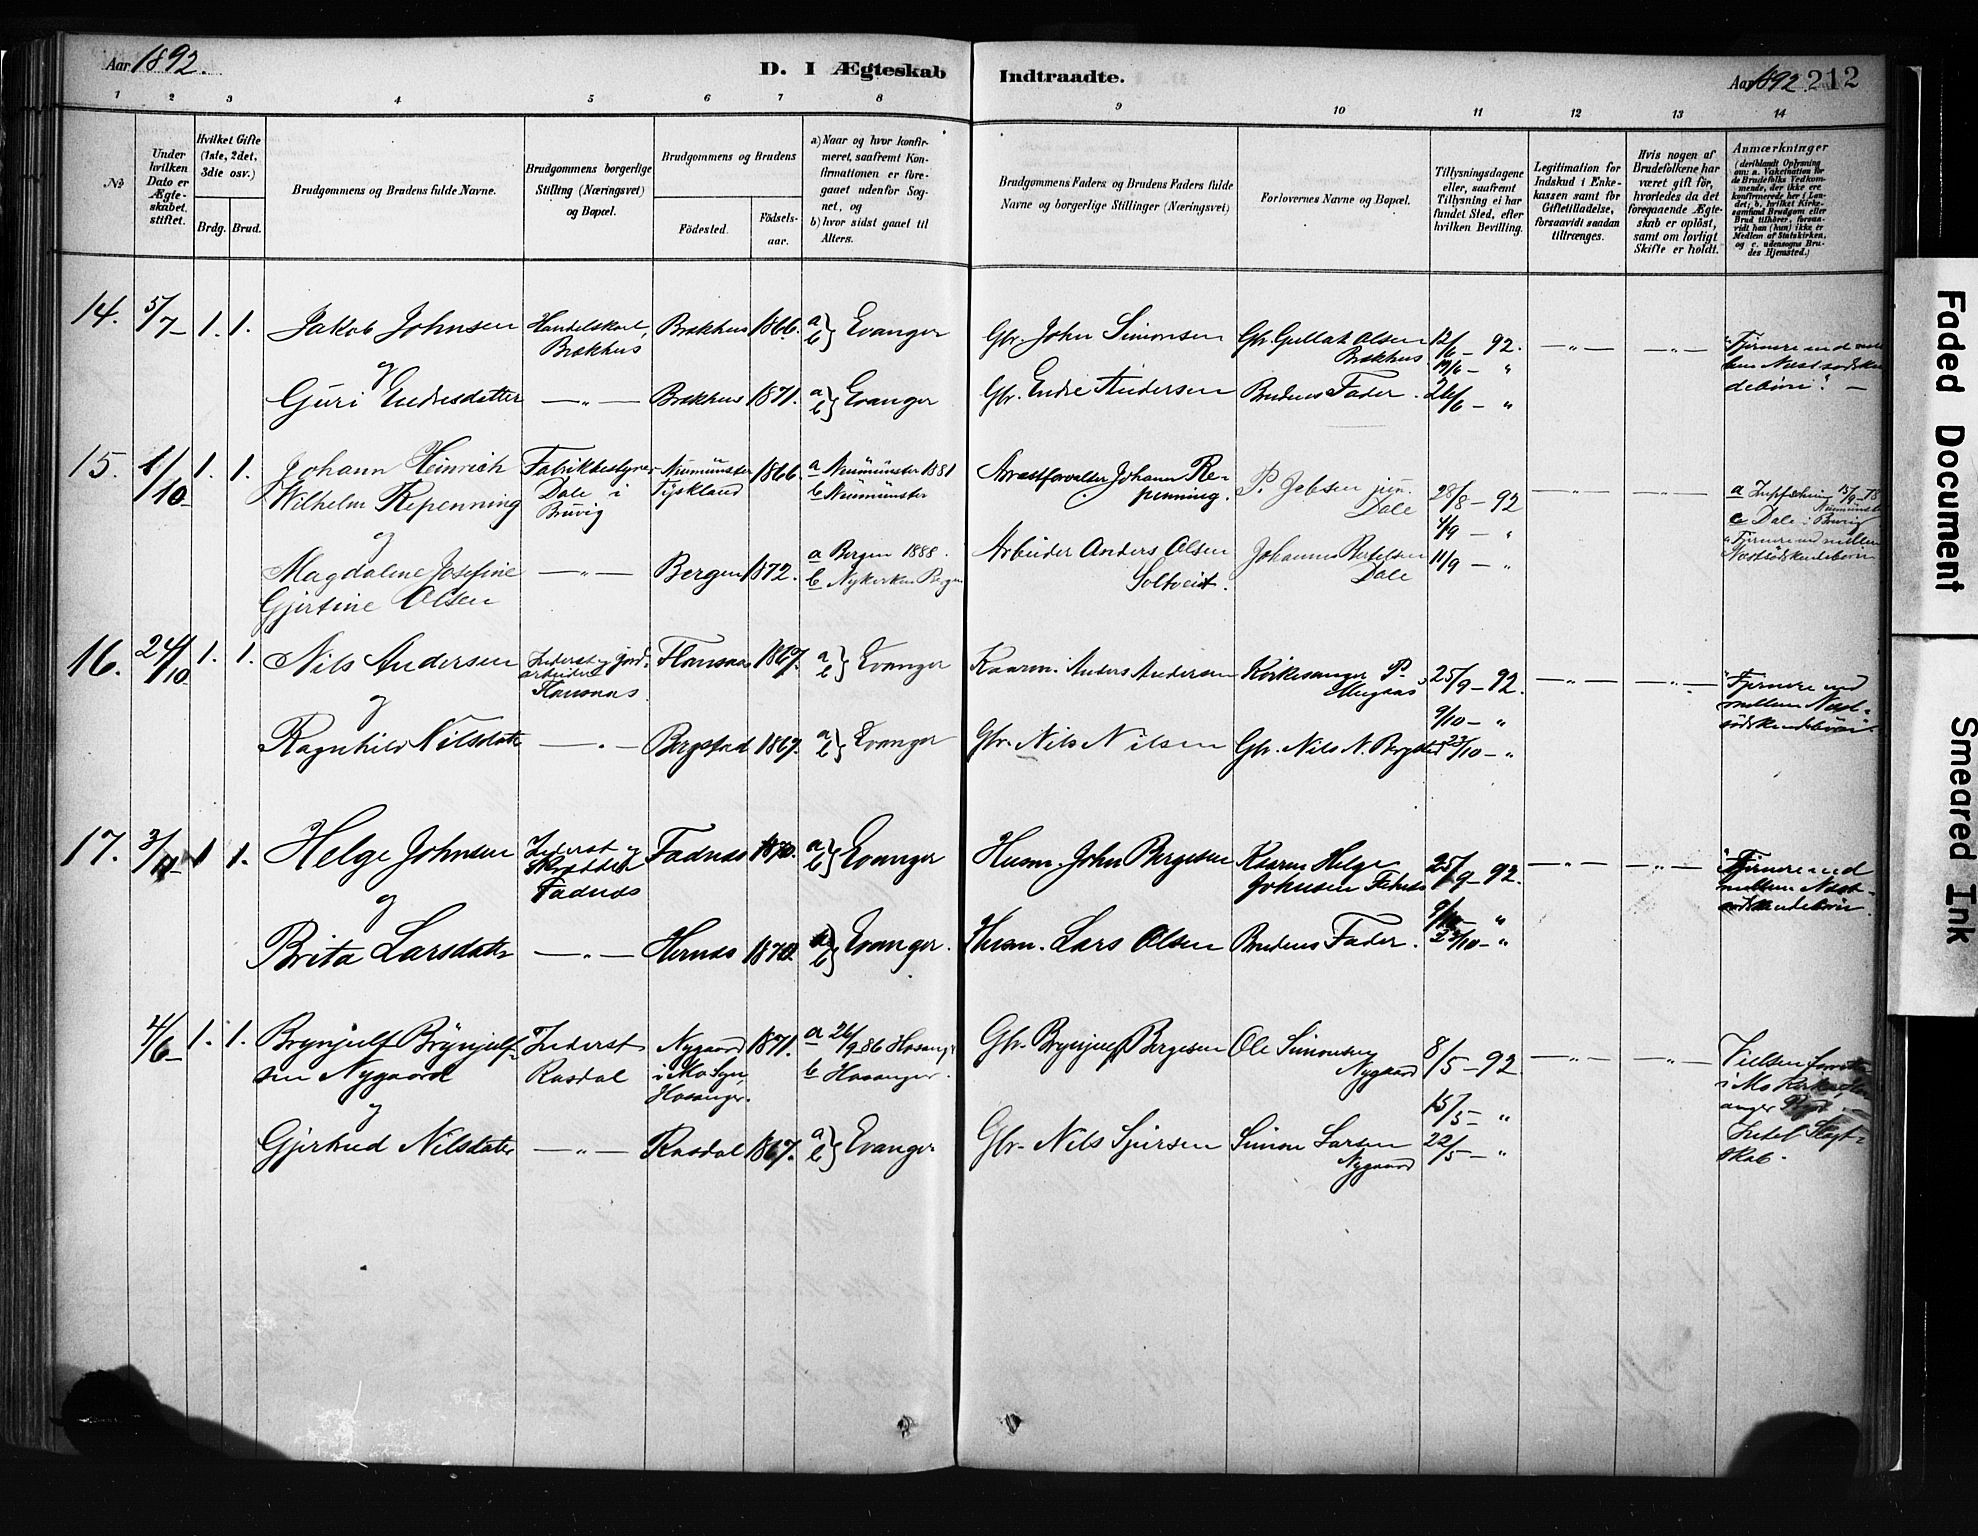 Aar 1892.
D. I Ægteskab
Indtraadte.
Aar 1892. 212
1 2 3 4 5 6 7 8 9 10 11 12 13 14
No
Under hvilken Dato er Ægteskabet stiftet.
Hvilket Gifte (1ste, 2det, 3die osv.)
Brdg. Brud.
Brudgommens og Brudens fulde Navne.
Brudgommens borgerlige Stilling (Næringsvei) og Bopæl.
Brudgommens og Brudens
Fødested.
Fødselsaar.
a) Naar og hvor konfirmeret, saafremt Konfirmationen er foregaaet udenfor Sognet, og
b) hvor sidst gaaet til Alters.
Brudgommens Faders og Brudens Faders fulde Navne og borgerlige Stillinger (Næringsvei)
Forlovernes Navne og Bopæl.
Tillysningsdagene eller, saafremt Tillysning ei har fundet Sted, efter hvilken Bevilling.
Legitimation for Indskud i Enkekassen samt for Giftetilladelse, forsaavidt saadan tiltrænges.
Hvis nogen af Brudefolkene har været gift før, hvorledes da det foregaaende Ægteskab er opløst, samt om lovligt Skifte er holdt.
Anmærkninger
(deriblandt Oplysning om: a. Vakcination for de Brudefolks Vedkommende, der ikke ere konfirmerede her i Landet; b. hvilket Kirkesamfund Brudgom eller Brud tilhører, forsaavidt han (hun) ikke er Medlem af Statskirken, og c. udensogns Brudes Hjemsted.)
14. 5/7 1. 1. Jakob Johnsen Handelskarl, Brækhus Brækhus 1866. a b} Evanger Gbr. John Simonsen Gbr. Gullak Olsen Brækhus 12/6 - 92. —„— —„— "Fjernere end
19/6 - „
og
Guri Endresdatter —„— Brækhus 1871. a b} Evanger Gbr. Endre Andersen Brudens Fader. 26/6 - „
15. 1/10 1. 1. Johann Heinrich Wilhelm Repenning Fabrikbestyrer Dale i Bruvig Neumünster Tyskland 1866. a Neumünster 1881 b Neumünster Arrestforvalter Johann Repenning. P. Jebsen jun. Dale 28/8 - 92 —„— —„—
4/9 - „ c Dale i Bruvig
og
Magdalene Josefine Gjertine Olsen —„— Bergen 1872. a Bergen 1888. b Nykirken Bergen Arbeider Anders Olsen Johannes Bertelsen Dale 11/9 - „
16. 24/10 1. 1. Nils Andersen Inderst og Jordarbeider 1867. a b} Evanger Kaarm. Anders Andersen Kirkesanger P. 25/9 - 92. —„— —„— "Fjernere end mellem Næstsødskendebørn"
9/10 - „
og
Ragnhild Nilsdatter —„— Bergstad 1867. a b} Evanger Gbr. Nils Nilsen Gbr. Nils N. Bergstad 23/10 - „
17. 3/11 1 1. Helge Johnsen Inderst og Skrædder Fadnæs Fadnæs a b} Evanger Husm. John Bergesen Kaarm Helge Johnsen 25/9 - 92. —„— —„— "Fjernere end mellem Næstsødskendebørn.
9/10 - „
og
Brita Larsdatter —„— Hernæs a b} Evanger. Husm. Lars Olsen Brudens Fader. 23/10 - „
4/6 1. 1. Brynjulf Brynjulfsen Nygaard Inderst Rasdal Nygaard i Mo Sgn, Hosanger. 1871. a 26/9 86 Hosanger b Hosanger. Gbr. Brynjulf Bergesen Ole Simonsen Nygaard 8/5 - 92. —„— —„— Vielsen forrettet i Mo Kirke,
15/5 - „
og
Gjertrud Nilsdatter —„— Rasdal 1867. a b} Evanger Gbr. Nils Sjursen Simon Larsen Nygaard 22/5 - „ Intet Slægtskab.
Faded Document
Smeared Ink